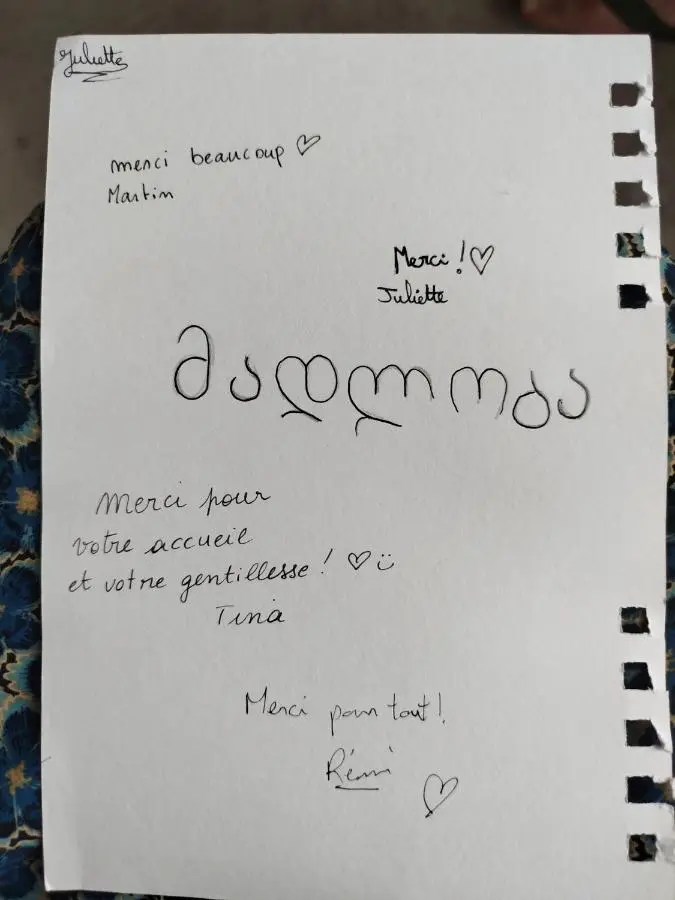 Juliette
merci beaucoup ♡
Martin
Merci ! ♡
Juliette
მადლობა
Merci pour
votre accueil
et votre gentillesse ! ♡ ☺
Tina
Merci pour tout !
Rémi
♡